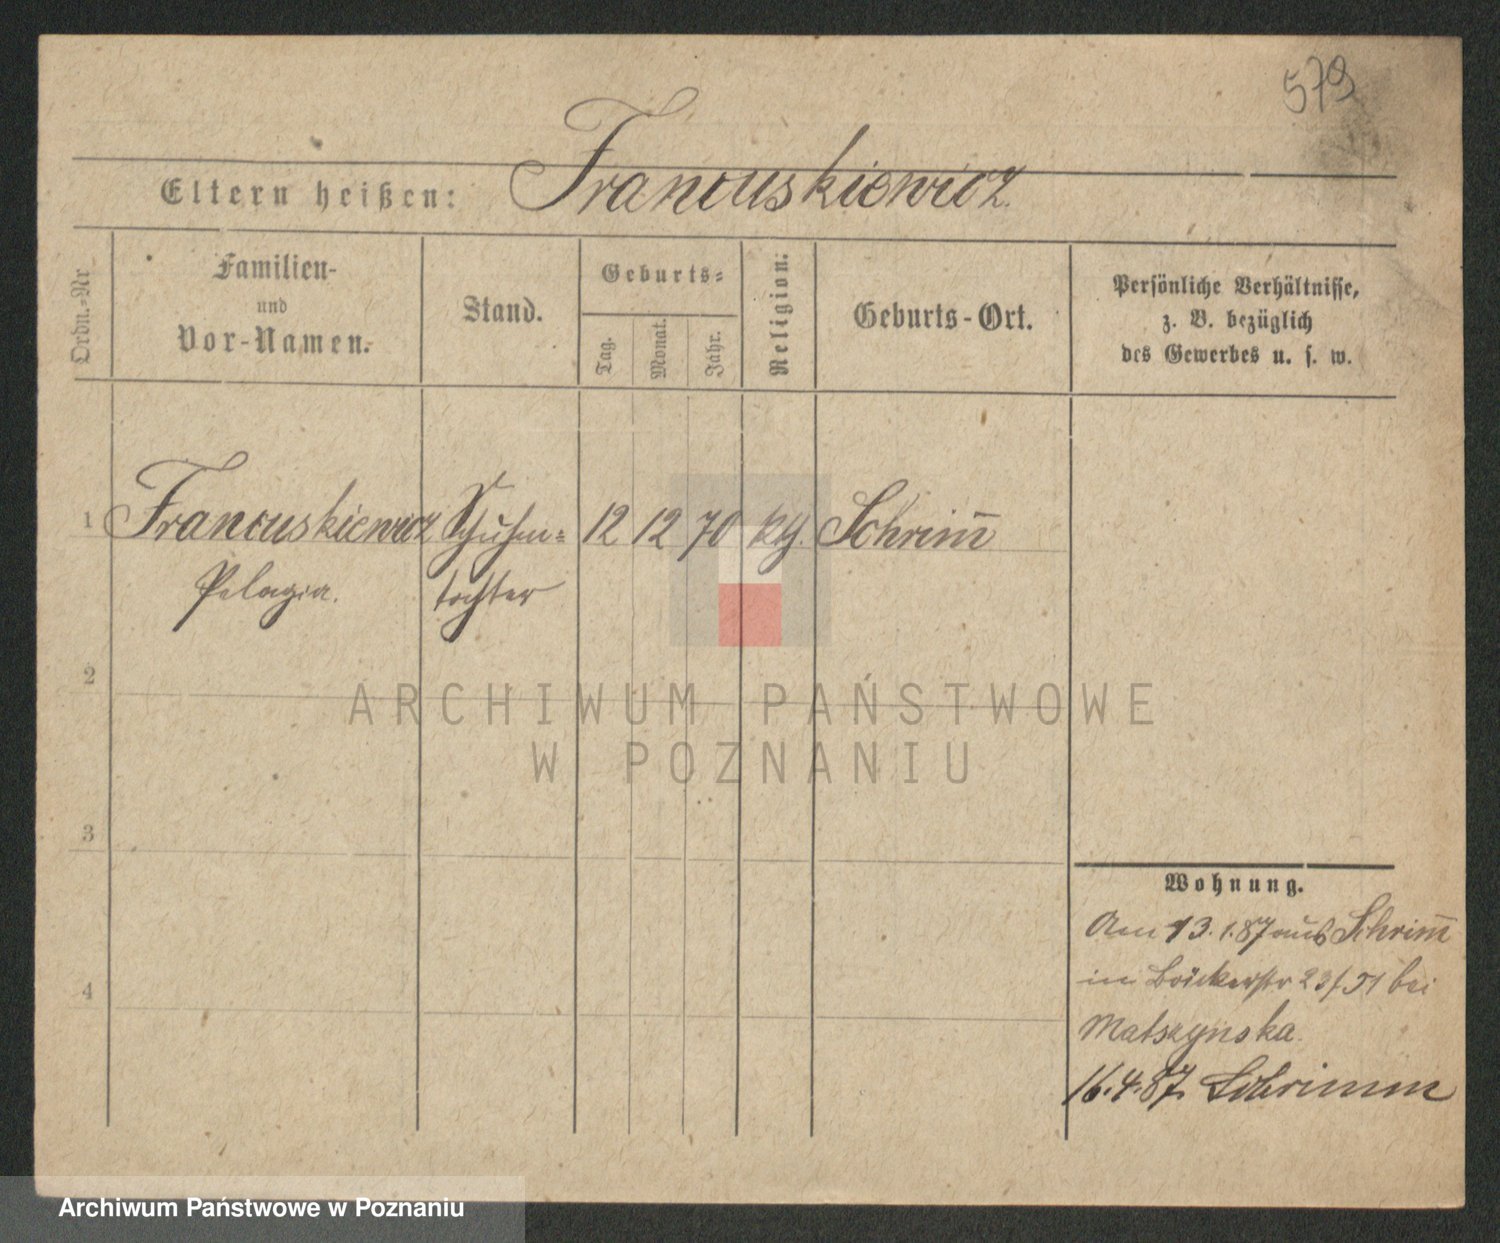 579
Eltern heißen: Francuskiewicz.
Ordn.-Nr
Familien-
und
Vor-Namen.
Stand.
Geburts-
Tag.
Monat.
Jahr.
Religion.
Geburts-Ort.
Persönliche Verhältnisse,
z. B. bezüglich
des Gewerbes u. s. w.
1 Francuskiewicz Schuhm- 12 12 70 kth. Schrim̅
Pelagia. tochter
2
ARCHIWUM PAŃSTWOWE
W POZNANIU
3
4
Wohnung.
Am 13.1.87 aus Schrim̅
in 23/ bei
Matszynska.
16.4.87. Schrimm
Archiwum Państwowe w Poznaniu